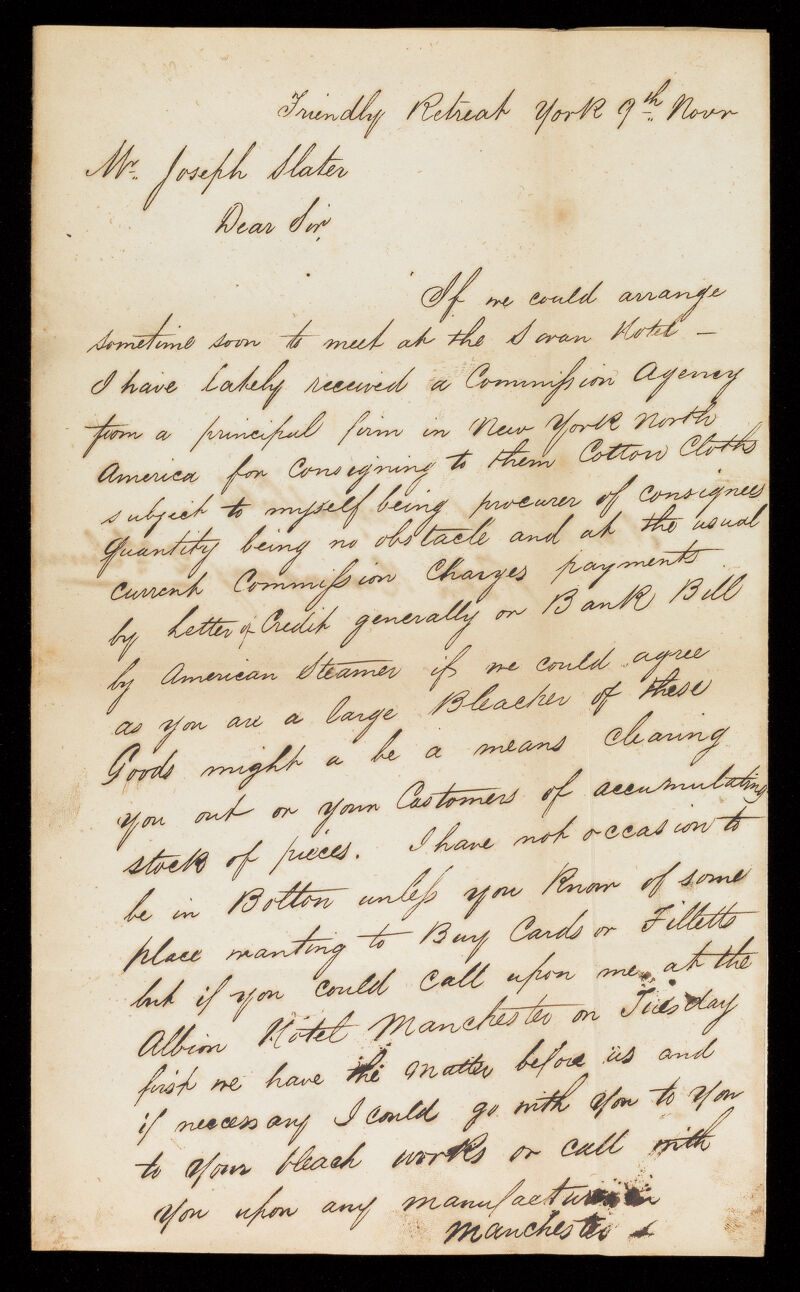 Friendly Retreat York 9th Novr
Mr. Joseph Slater
Dear Sir,
If we could arrange
sometime soon to meet at the Swan Hotel —
I have lately received a Commission Agency
from a principal firm in New York North
America for Consigning to them Cotton Cloths
subject to myself being procurer of consignees
Quantity being no obstacle and at the usual
current Commission Charges payments
by Letter of Credit generally or Bank Bill
by American Steamer if we could agree
as you are a large Bleacher of these
Goods might a be a means clearing
you out or your Customers of accumulating
stock of pieces. I have not occasion to
be in Bolton unless you Know of some
place wanting to Buy Cards or Filletts
but if you could Call upon me at the
Albion Hotel Manchester on Tuesday
first we have the matter before us and
if necessary I could go with You to You
to Your bleach works or call with
You upon any manufacturer in
Manchester